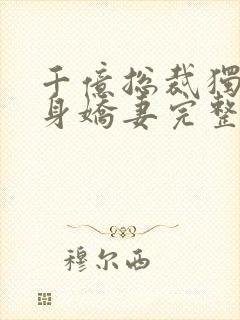 千億总裁獨
身嬌妻完整
穆尔西